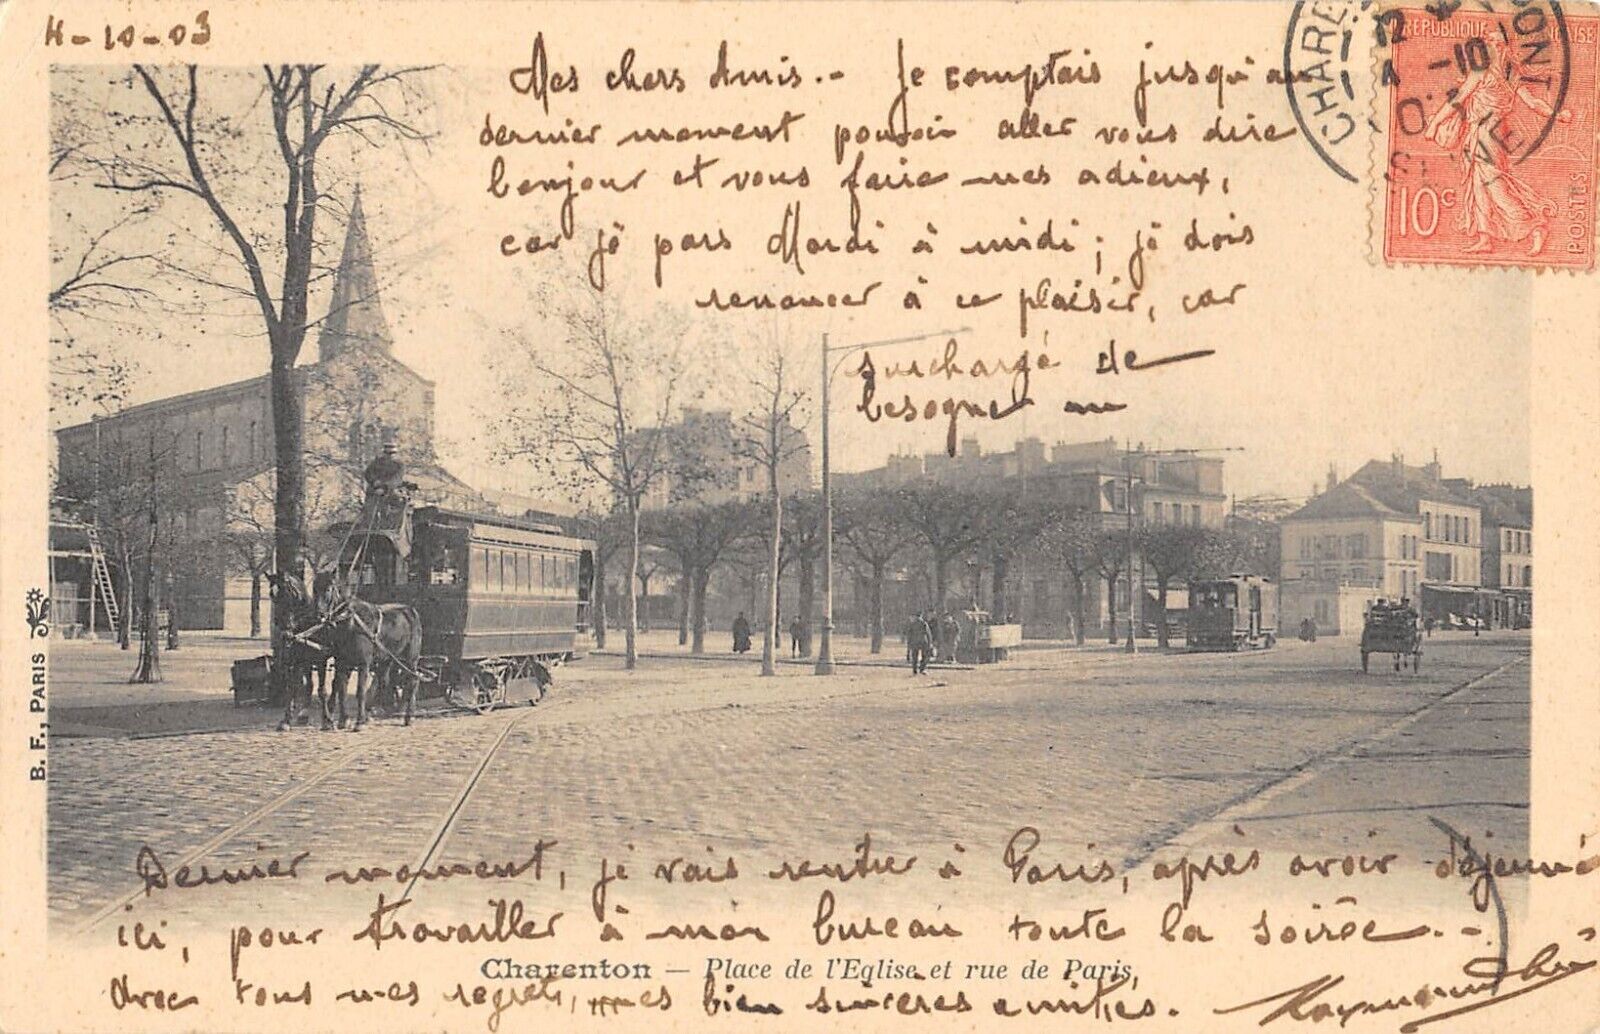 4-10-03
Mes chers Amis.- Je comptais jusqu'au
dernier moment pouvoir aller vous dire
bonjour et vous faire mes adieux,
car je pars Mardi à midi; je dois
renoncer à ce plaisir, car
surchargé de
besogne au
Dernier moment, je vais rentrer à Paris, après avoir déjeuné
ici, pour travailler à mon bureau toute la soirée.-
Avec tous mes regrets, mes bien sincères amitiés.
Raymond
Charenton — Place de l'Eglise et rue de Paris.
B. F., PARIS
CHARENTON
12
4 -10
SEINE
REPUBLIQUE FRANÇAISE
10c
POSTES